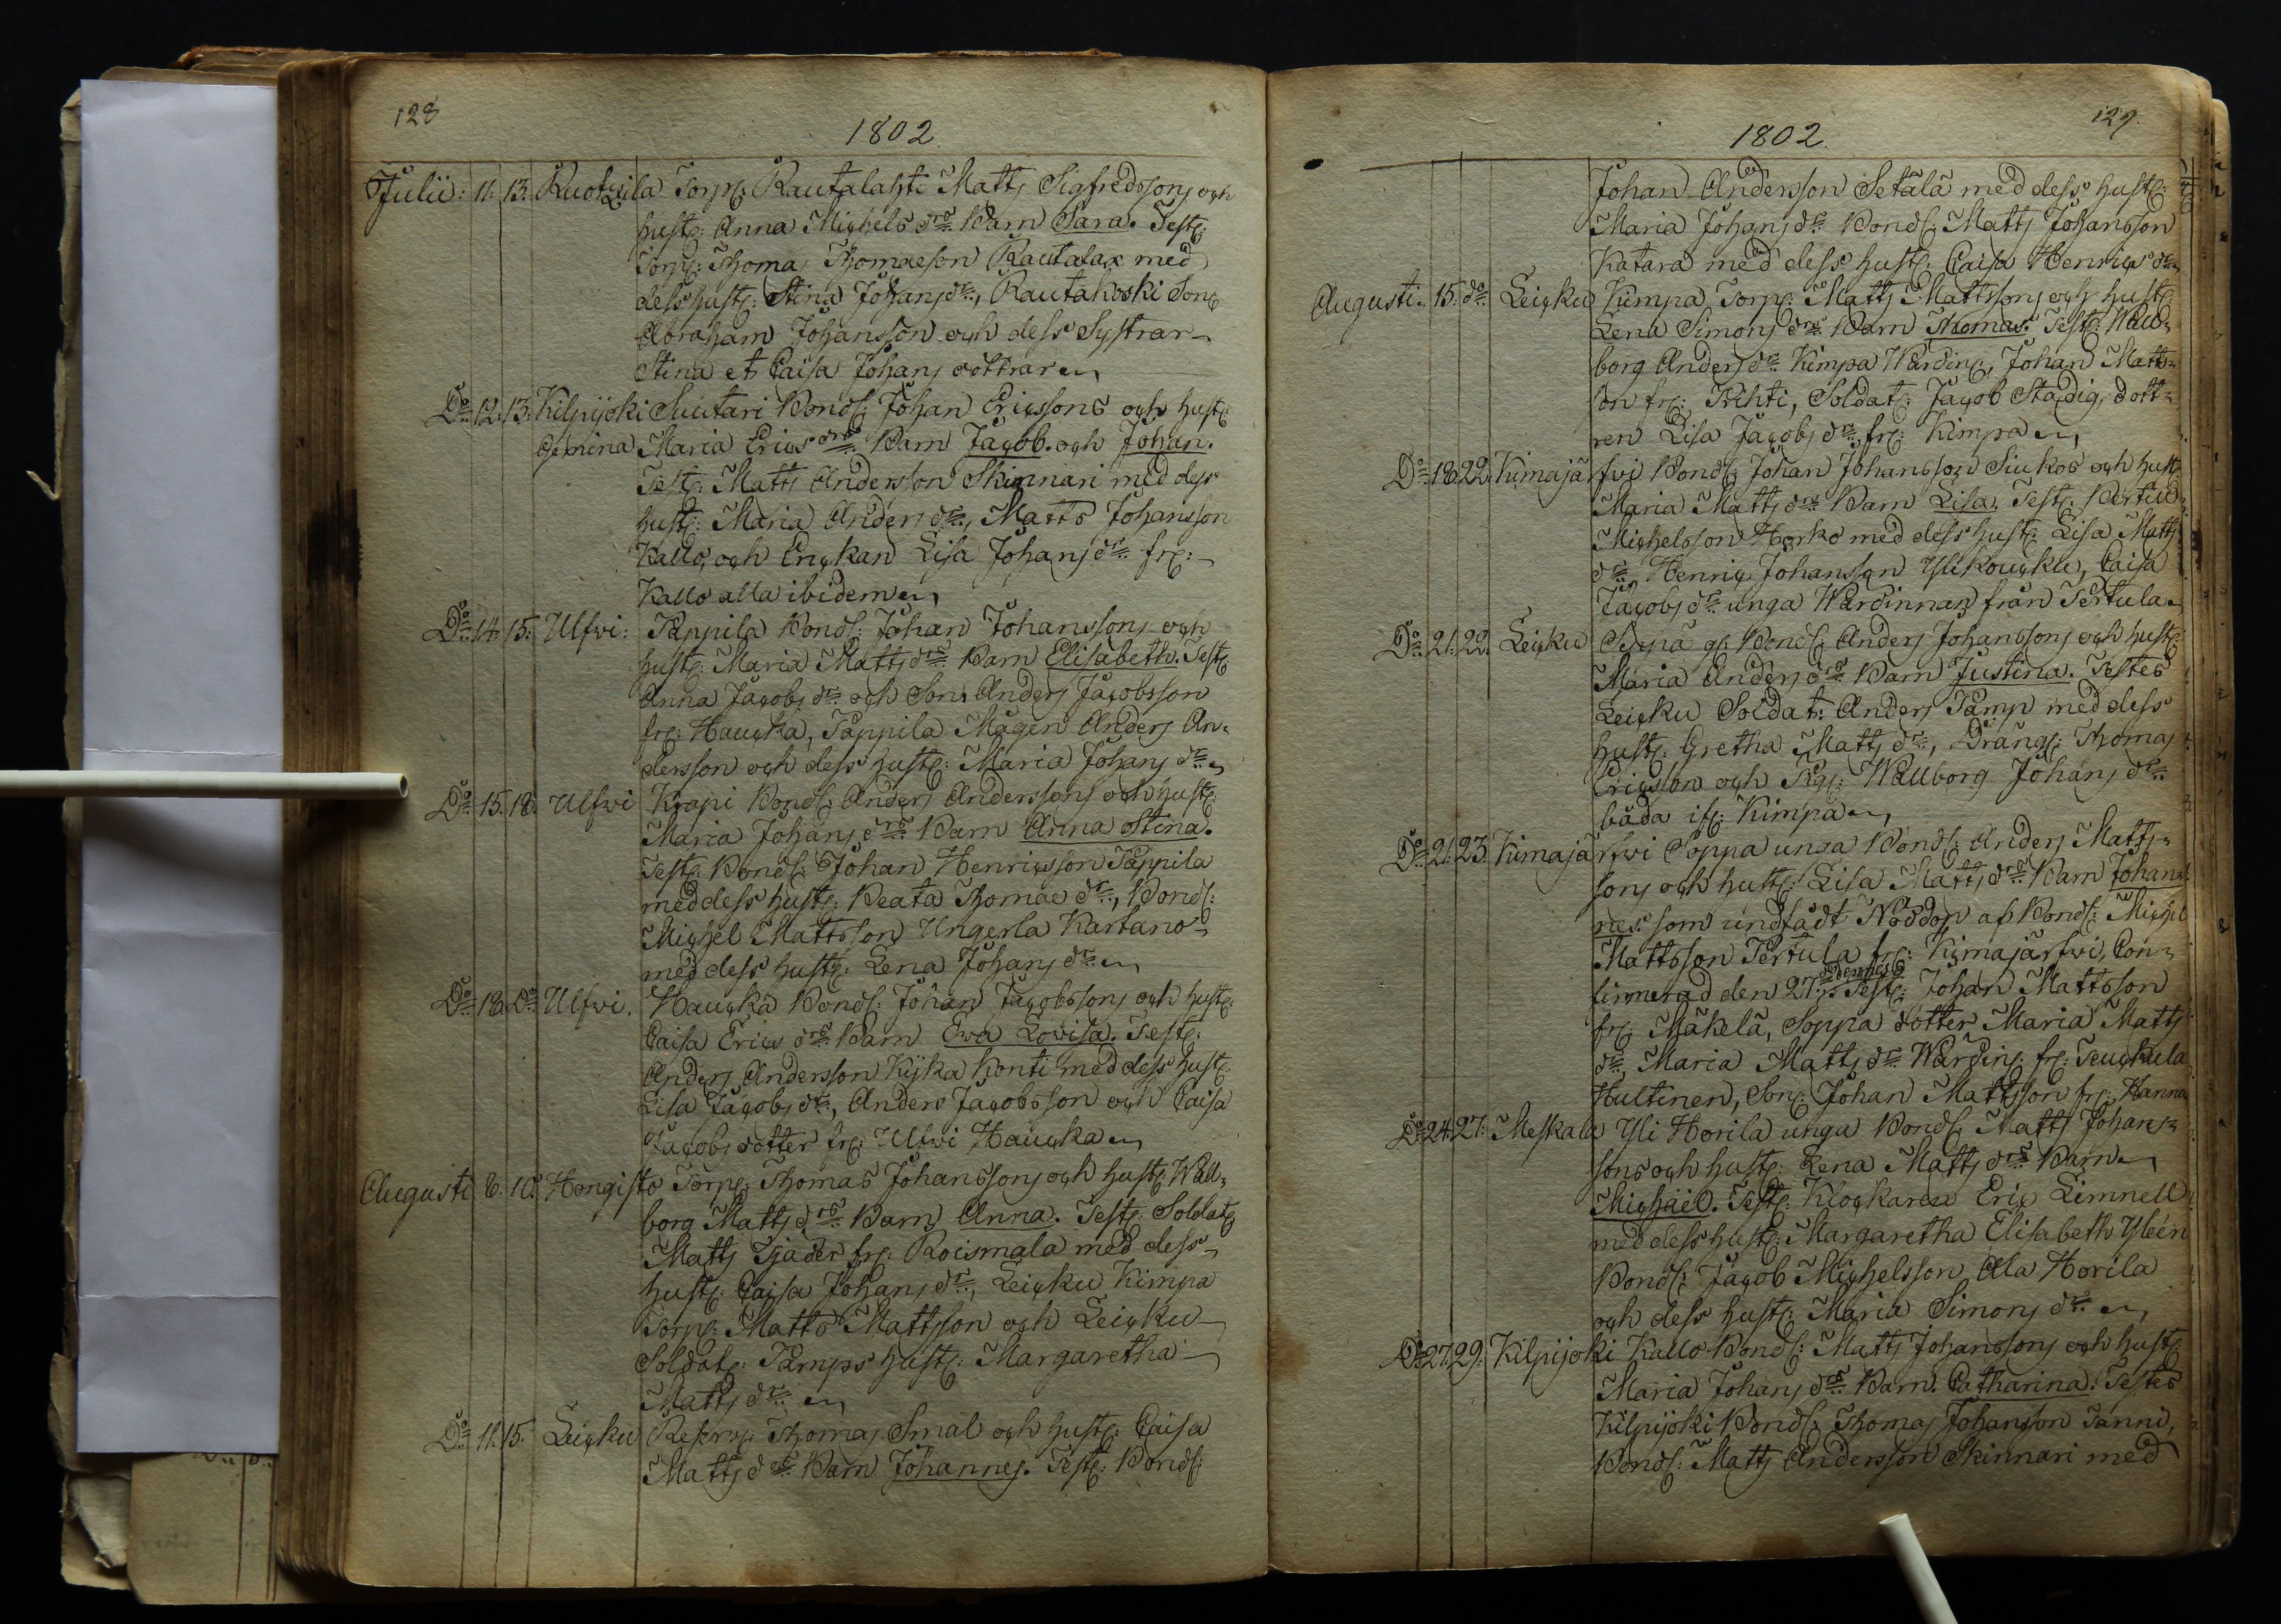 128
1802
Julii: 11. 13. Ruotzila Torp: Rautalahti Matts Sigfredssons och
hust: Anna Michels drs Barn Sara. Test:
Torp: Thomas Thomaeson Rautalax med
dess hust: Stina Johans dr, Rautakoski Son
Abraham Johansson och dess Systrar
Stina et Caisa Johans döttrar
Do 12. 13. Kilpijoki Suutari Bond: Johan Ericssons och hust:
Gemina Maria Erics drs Barn Jacob. och Johan.
Test: Matts Andersson Skinnari med dess
hust: Maria Anders dr, Matts Johansson
Kallo, och Enckan Lisa Johans dr fr:
Kallo alla ibidem
Do 14. 15. Ulfvi: Pappila Bond: Johan Johanssons och
hust: Maria Matts drs Barn Elisabeth. Test:
Anna Jacobs dr och Son Anders Jacobsson
fr: Haucka, Pappila Mågen Anders An-
dersson och dess hust: Maria Johans dr
Do 15. 18. Ulfvi Krapi Bond: Anders Anderssons och hust:
Maria Johans drs Barn Anna Stina.
Test: Bond: Johan Henricsson Pappila
med dess hust: Beata Thomae dr, Bond:
Michel Mattsson Ungerla Kartano
med dess hust: Lena Johans dr
Do 18. Do Ulfvi. Haucka Bond: Johan Jacobssons och hust:
Caisa Erics drs Barn Ewa Lovisa. Test:
Anders Andersson Kyka Konti med dess hust:
Lisa Jacobs dr, Anders Jacobsson och Caisa
Jacobs dotter fr: Ulfvi Haucka
Augusti 8. 10. Hongisto Torp: Thomas Johanssons och hust: Wall-
borg Matts drs Barn Anna. Test: Soldat:
Matts Tjäder fr: Roismala med dess
hust: Caisa Johans dr, Leicku Kimpa
Torp: Matts Mattsson och Leicku
Soldat: Pamps hust: Margaretha
Matts dr
Do 11. 15. Leicku Reserv: Thomas Smal och hust: Caisa
Matts drs Barn Johannes. Test: Bond:
129.
1802.
Johan Andersson Setälä med dess hust:
Maria Johans dr Bond: Matts Johansson
Katara med dess hust: Caisa Henrics dr
Augusti. 15. do Leicku Kimpa Torp: Matts Mattssons och hust:
Lena Simons drs Barn Thomas. Test: Wall-
borg Anders dr Kimpa Wärdin:, Johan Matts-
son fr: Prihti, Soldat: Jacob Stadig, dott-
ren Lisa Jacobs dr fr: Kimpa
Do 18. 22. Kimajärfvi Bond: Johan Johansson Siukos och hust:
Maria Matts drs Barn Lisa. Test: Bertil
Michelsson Horko med dess hust: Lisa Matts
dr, Henric Johansson Ylikoucku, Caisa
Jacobs dr unga Wärdinnan från Pertula
Do 21. 22. Leicku Seppä g: Bond: Anders Johanssons och hust:
Maria Anders drs Barn Justina. Testes
Leicku Soldat: Anders Pamp med dess
hust: Gretha Matts dr, Dräng: Thomas
Ericsson och Pig: Wallborg Johans dr
båda if: Kimpa
Do 21. 23. Kimajärfvi Soppa unga Bond: Anders Matts-
sons och hust: Lisa Matts drs Barn Johan-
nes som undfådt Nöddop af Bond: Michel
Mattsson Pertula fr: Kimajärfvi, Con-
firmerad den 27 Test: Johan Mattsson
fr: Mäkelä, Soppa dotter Maria Matts
dr, Maria Matts dr Wärdin: fr: Teuckula
Hultinen, Son: Johan Mattsson fr: Hanna
Do 24. 27. Meskala Yli Horila unga Bond: Matts Johans-
sons och hust: Lena Matts drs Barn
Michaël. Test: Klockaren Eric Limnell
med dess hust: Margaretha Elisabeth Yleén
Bond: Jacob Michelsson Ala Horila
och dess hust: Maria Simons dr
Do 27. 29. Kilpijoki Kallo Bond: Matts Johanssons och hust:
Maria Johans drs Barn. Catharina. Testes
Kilpijoki Bond: Thomas Johansson Tanni,
Bond: Matts Andersson Skinnari med